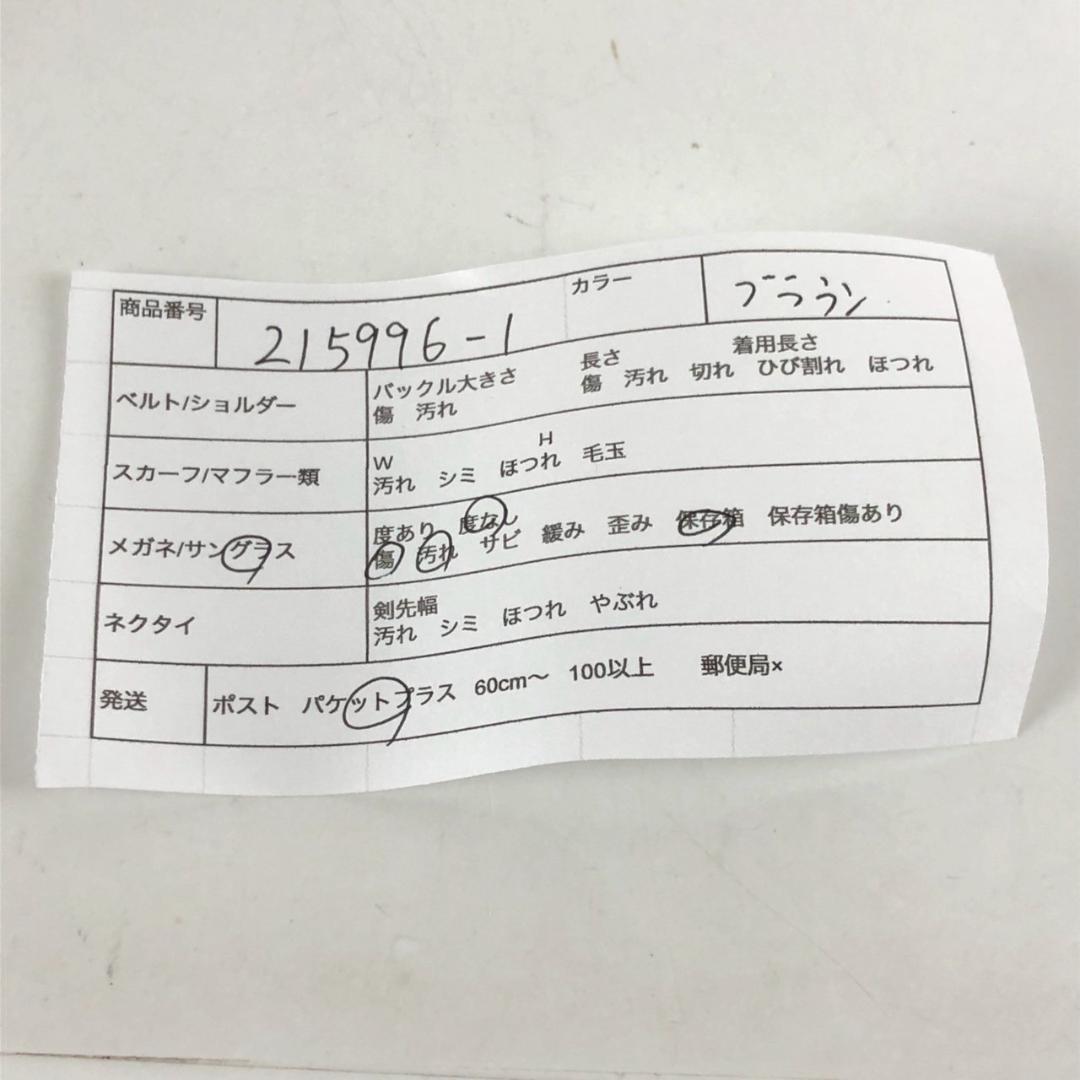 商品番号 215996-1 カラー ブラウン
ベルト/ショルダー バックル大きさ 長さ 着用長さ
傷 汚れ 傷 汚れ 切れ ひび割れ ほつれ
スカーフ/マフラー類 W H
汚れ シミ ほつれ 毛玉
メガネ/サングラス 度あり 度なし
傷 汚れ サビ 緩み 歪み 保存箱 保存箱傷あり
ネクタイ 剣先幅
汚れ シミ ほつれ やぶれ
発送 ポスト パケットプラス 60cm〜 100以上 郵便局×